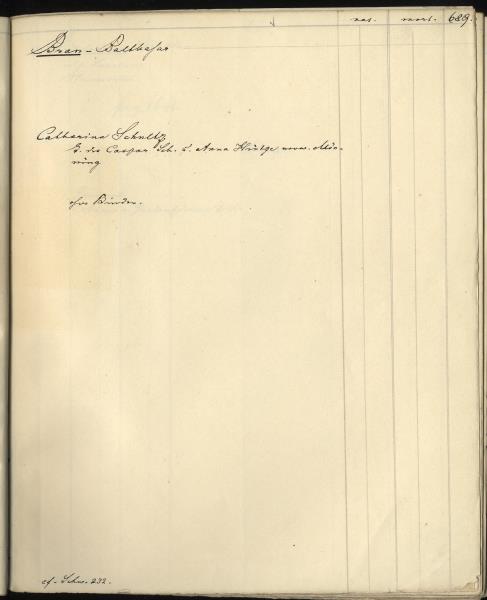 nat. mort. 689.
Bran - Balthasar
Catharina Schultz
T. des Caspar Sch. u. Anna
ning
ohne Kinder.
cf. Schw. 232.